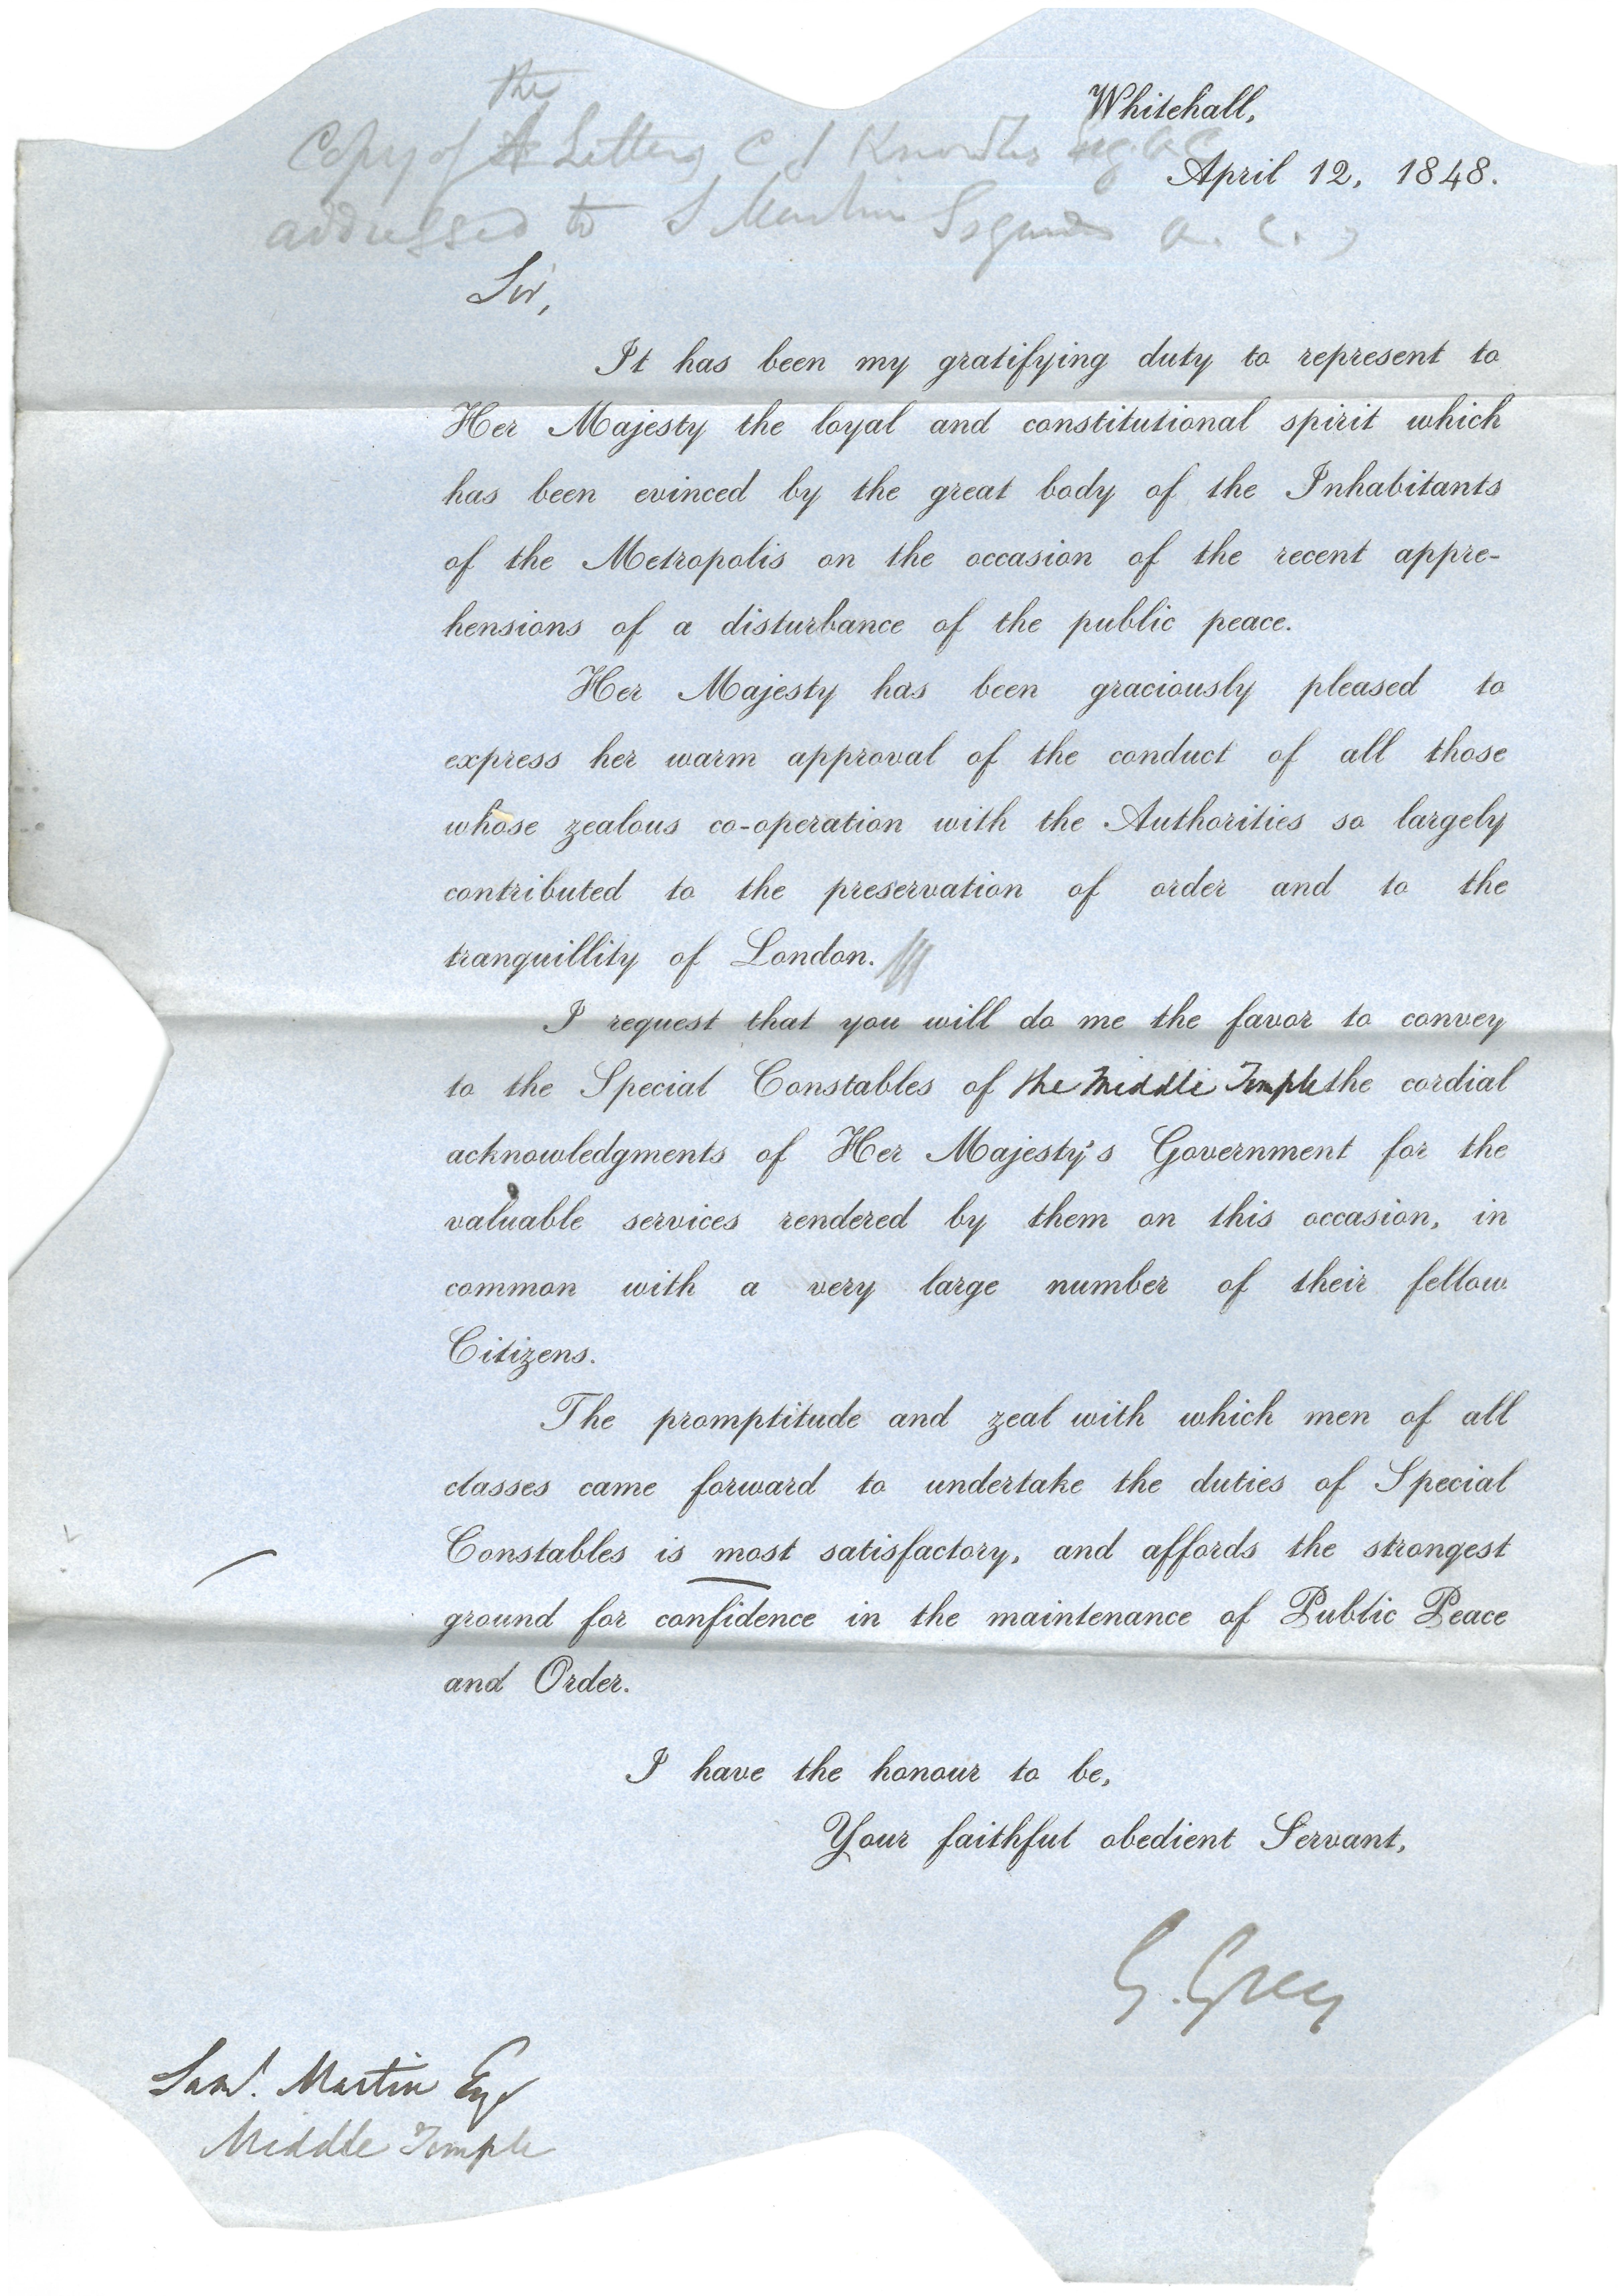 Whitehall,
the
Copy of A Letter C J Knowles
April 12, 1848.
addressed to S Martin
Sir,
It has been my gratifying duty to represent to
Her Majesty the loyal and constitutional spirit which
has been evinced by the great body of the Inhabitants
of the Metropolis on the occasion of the recent appre-
hensions of a disturbance of the public peace.
Her Majesty has been graciously pleased to
express her warm approval of the conduct of all those
whose zealous co-operation with the Authorities so largely
contributed to the preservation of order and to the
tranquillity of London.
I request that you will do me the favor to convey
to the Special Constables of the Middle Temple the cordial
acknowledgments of Her Majesty's Government for the
valuable services rendered by them on this occasion, in
common with a very large number of their fellow
Citizens.
The promptitude and zeal with which men of all
classes came forward to undertake the duties of Special
Constables is most satisfactory, and affords the strongest
ground for confidence in the maintenance of Public Peace
and Order.
I have the honour to be,
Your faithful obedient Servant,
G. Grey
Saml. Martin Esqr
Middle Temple